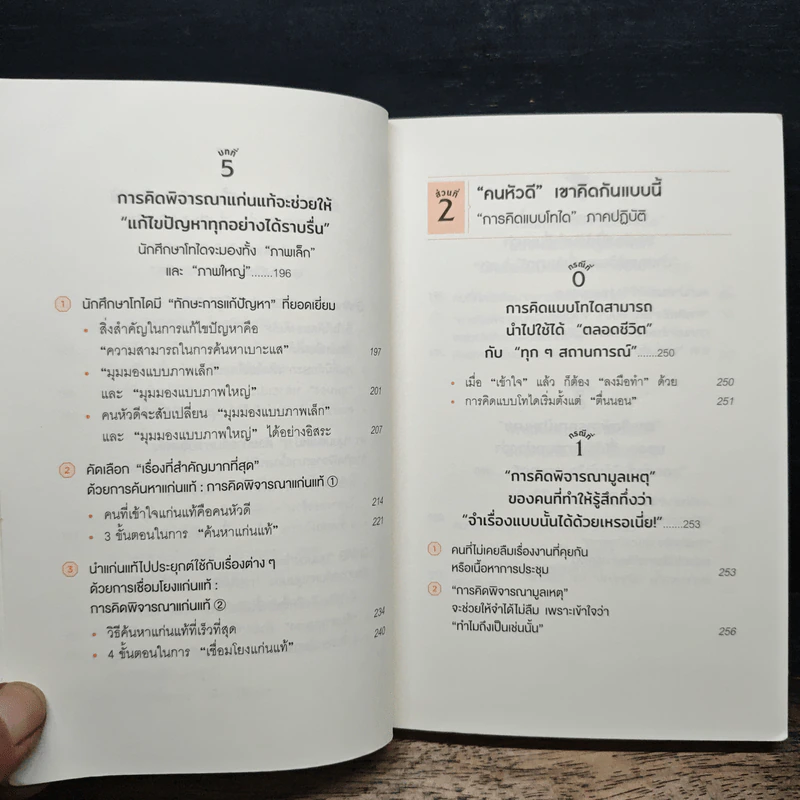 บทที่
5
การคิดพิจารณาแก่นแท้จะช่วยให้
“แก้ไขปัญหาทุกอย่างได้ราบรื่น”
นักศึกษาโทไดจะมองทั้ง “ภาพเล็ก”
และ “ภาพใหญ่”.......196
1 นักศึกษาโทไดมี “ทักษะการแก้ปัญหา” ที่ยอดเยี่ยม
• สิ่งสำคัญในการแก้ไขปัญหาคือ
“ความสามารถในการค้นหาเบาะแส” 197
• “มุมมองแบบภาพเล็ก”
และ “มุมมองแบบภาพใหญ่” 201
• คนหัวดีจะสับเปลี่ยน “มุมมองแบบภาพเล็ก”
และ “มุมมองแบบภาพใหญ่” ได้อย่างอิสระ 207
2 คัดเลือก “เรื่องที่สำคัญมากที่สุด”
ด้วยการค้นหาแก่นแท้ : การคิดพิจารณาแก่นแท้ ①
• คนที่เข้าใจแก่นแท้คือคนหัวดี 214
• 3 ขั้นตอนในการ “ค้นหาแก่นแท้” 221
3 นำแก่นแท้ไปประยุกต์ใช้กับเรื่องต่าง ๆ
ด้วยการเชื่อมโยงแก่นแท้ :
การคิดพิจารณาแก่นแท้ ②
• วิธีค้นหาแก่นแท้ที่เร็วที่สุด 234
• 4 ขั้นตอนในการ “เชื่อมโยงแก่นแท้” 240
ส่วนที่
2
“คนหัวดี” เขาคิดกันแบบนี้
“การคิดแบบโทได” ภาคปฏิบัติ
กรณีที่
0
การคิดแบบโทไดสามารถ
นำไปใช้ได้ “ตลอดชีวิต”
กับ “ทุก ๆ สถานการณ์”......250
• เมื่อ “เข้าใจ” แล้ว ก็ต้อง “ลงมือทำ” ด้วย 250
• การคิดแบบโทไดเริ่มตั้งแต่ “ตื่นนอน” 251
กรณีที่
1
“การคิดพิจารณามูลเหตุ”
ของคนที่ทำให้รู้สึกทึ่งว่า
“จำเรื่องแบบนั้นได้ด้วยเหรอเนี่ย!”......253
1 คนที่ไม่เคยลืมเรื่องงานที่คุยกัน
หรือเนื้อหาการประชุม 253
2 “การคิดพิจารณามูลเหตุ”
จะช่วยให้จำได้ไม่ลืม เพราะเข้าใจว่า
“ทำไมถึงเป็นเช่นนั้น” 256